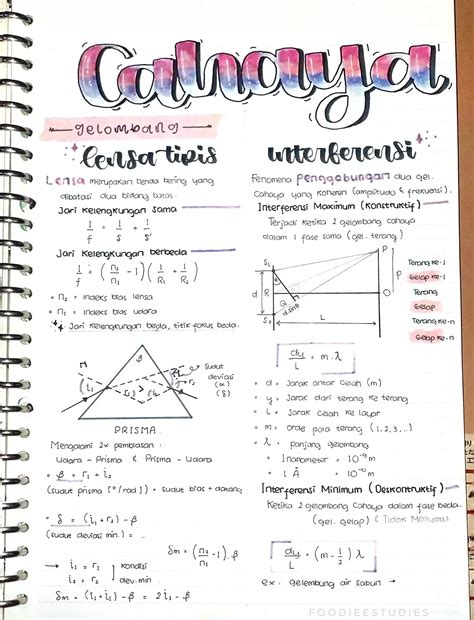 Cahaya
gelombang
lensa tipis
Lensa merupakan benda bening yang
dibatasi dua bidang batas.
Jari Kelengkungan sama
1/f = 1/s + 1/s'
Jari Kelengkungan berbeda
1/f = (n₂/n₁ - 1)(1/R₁ + 1/R₂)
• n₂ = indeks bias lensa
• n₁ = indeks bias udara
* Jari Kelengkungan beda, titik fokus beda.
β
Sudut
deviasi
(δ)
i₁
r₂
PRISMA
Mengalami 2x pembiasan:
Udara - Prisma & Prisma - Udara
• β = r₁ + i₂
(sudut prisma (°/rad) = sudut bias + datang
• δ = (i₁ + r₂) - β
(sudut deviasi min.) = ...
δm = (n₂/n₁ - 1) . β
→ i₁ = r₂ } kondisi
i₂ = r₁ } dev. min
δm = (i₁ + i₁) - β = 2i₁ - β
interferensi
Fenomena penggabungan dua gel.
Cahaya yang koheren (amplitudo & frekuensi).
Interferensi Maximum (Konstruktif)
Terjadi ketika 2 gelombang cahaya
dalam 1 fase sama (gel. terang)
S₁
d
R
S₂
θ
d.sinθ
L
P
P
O
Terang ke-1
Gelap ke-1
Terang
Gelap
Terang ke-n
Gelap ke-n
dy/L = m . λ
• d = Jarak antar celah (m)
• y = Jarak dari terang ke terang
• L = Jarak celah ke layar
• m = orde pola terang (1, 2, 3, ...)
• λ = panjang gelombang
• 1 nanometer = 10⁻⁹ m
• 1 Å = 10⁻¹⁰ m
Interferensi Minimum (Deskontruktif)
Ketika 2 gelombang Cahaya dalam fase beda.
(gel. gelap) & Tidak Menyatu
dy/L = (m - 1/2) λ
ex: gelembung air sabun →
FOODIEESTUDIES